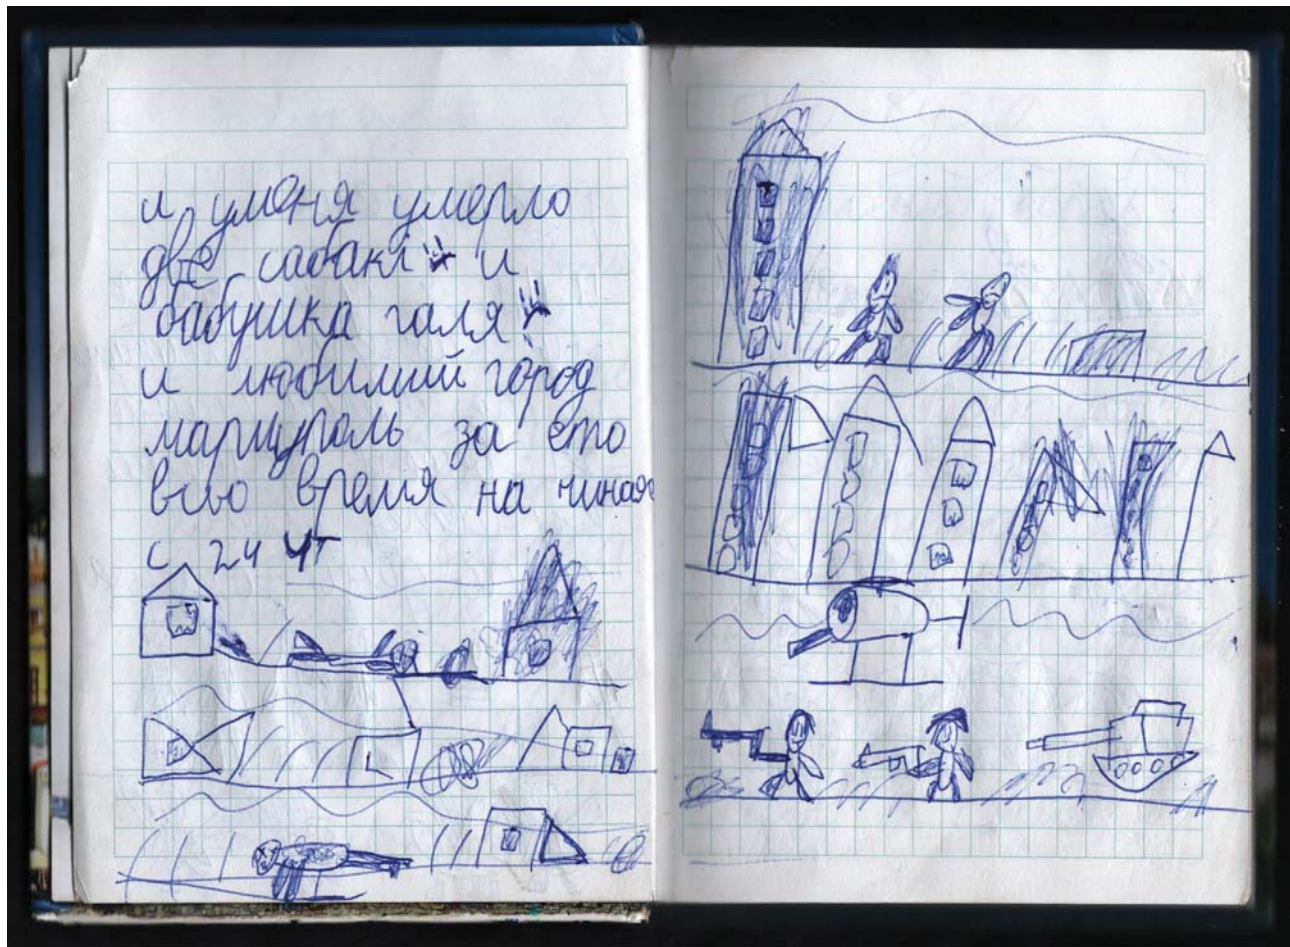 и уменя умерло
две сабаки и
бабушка галя
и любимий город
мариуполь за ето
всё время на чиная
с 24 чт